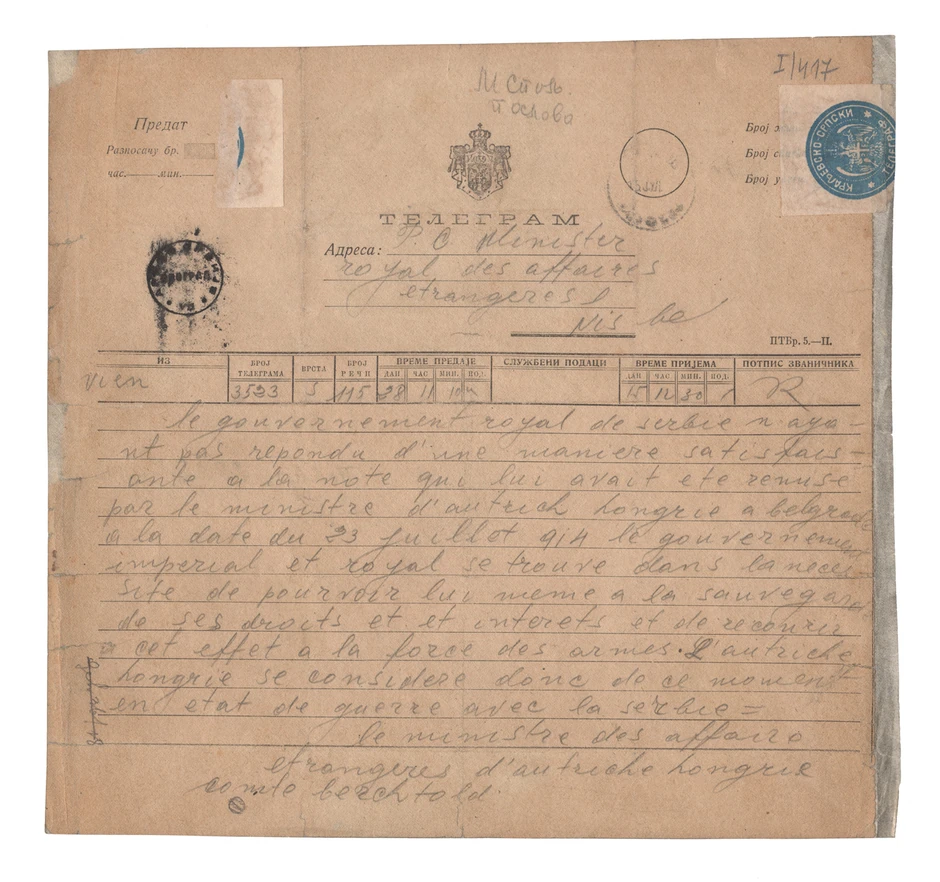 I/417
М Стиль.
послова
Предат
Разносачу бр.
час.——мин.——
Број
Број
Број у
КРАЉЕВСКО-СРПСКИ
ТЕЛЕГРАМ
Адреса: P. C Minister
royal des affaires
etrangeres
Nis be
ПТБр. 5.—II.
ИЗ БРОЈ ТЕЛЕГРАМА ВРСТА БРОЈ РЕЧИ ВРЕМЕ ПРЕДАЈЕ СЛУЖБЕНИ ПОДАЦИ ВРЕМЕ ПРИЈЕМА ПОТПИС ЗВАНИЧНИКА
ДАН ЧАС МИН. ПОД. ДАН ЧАС МИН. ПОД.
vien 3523 S 115 28 11 10 15 12 30 R
le gouvernement royal de serbie n aya-
nt pas repondu d'une maniere satisfais-
ante a la note qui lui avait ete remise
par le ministre d'autrich hongrie a belgrade
a la date du 23 juillot 914 le gouvernement
imperial et royal se trouve dans la neces
site de pourvoir lui meme a la sauvegard
de ses droits et et interets et de recourir
a cet effet a la force des armes. L'autriche
hongrie se considere donc de ce moment
en etat de guerre avec la serbie =
le ministre des affairo
etrangeres d'autriche hongrie
comte berchtold.